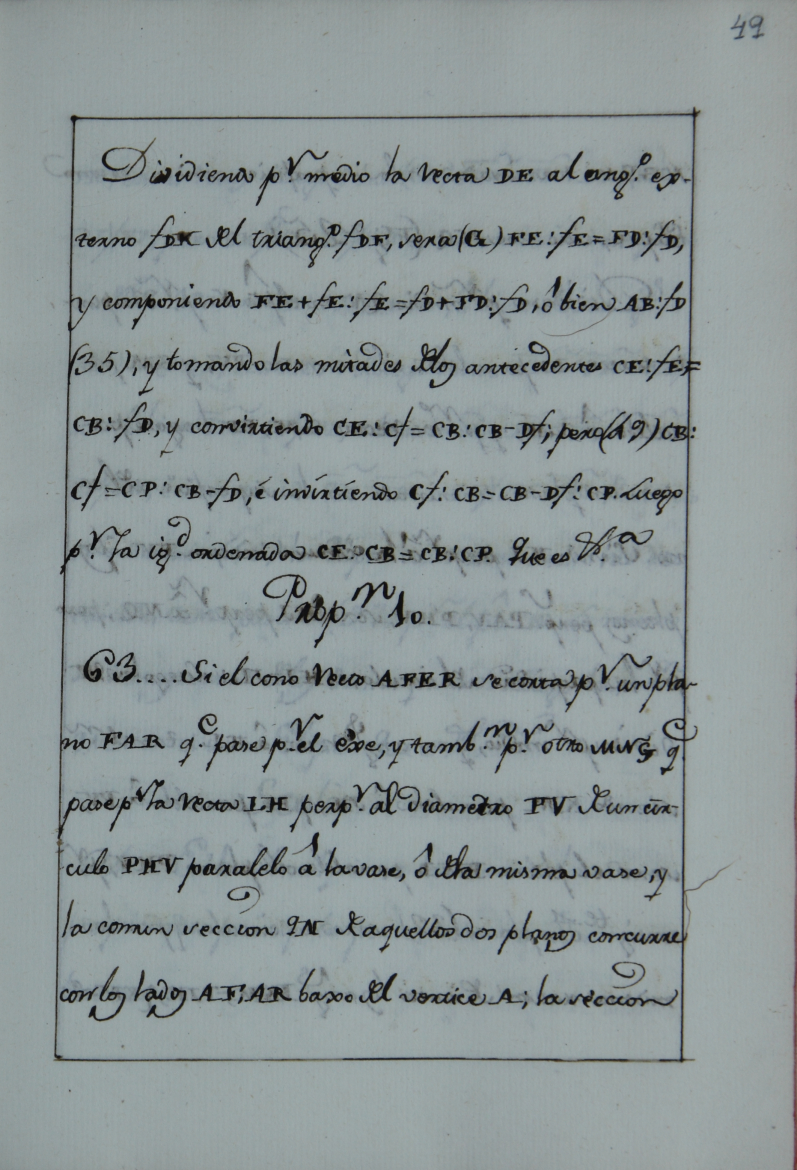 49
Dividiendo p.r medio la recta DE al ang.o ex-
terno fDK del triang.o fDF, sera (G) FE:fE=FD:fD,
y componiendo FE+fE:fE=fD+FD:fD, ó bien AB:fD
(35), y tomando las mitades de los antecedentes CE:fE=
CB:fD, y convirtiendo CE:Cf=CB:CB-Df; pero (49) CB:
Cf=CP:CB-fD, é invirtiendo Cf:CB=CB-Df:CP. Luego
p.r la ig.d ordenada CE:CB=CB:CP. Que es &.a
Prop.n 10.
63.... Si el cono recto AFER se corta p.r un pla-
no FAR q.e pase p.r el exe, y tamb.n p.r otro MNG q.e
pase p.r la recta LH perp.r al diametro PV de un cir-
culo PHV paralelo á la vase, ó de la misma vase, y
la comun seccion IN de aquellos dos planos concurre
con los lados AF, AR baxo del vertice A; la seccion